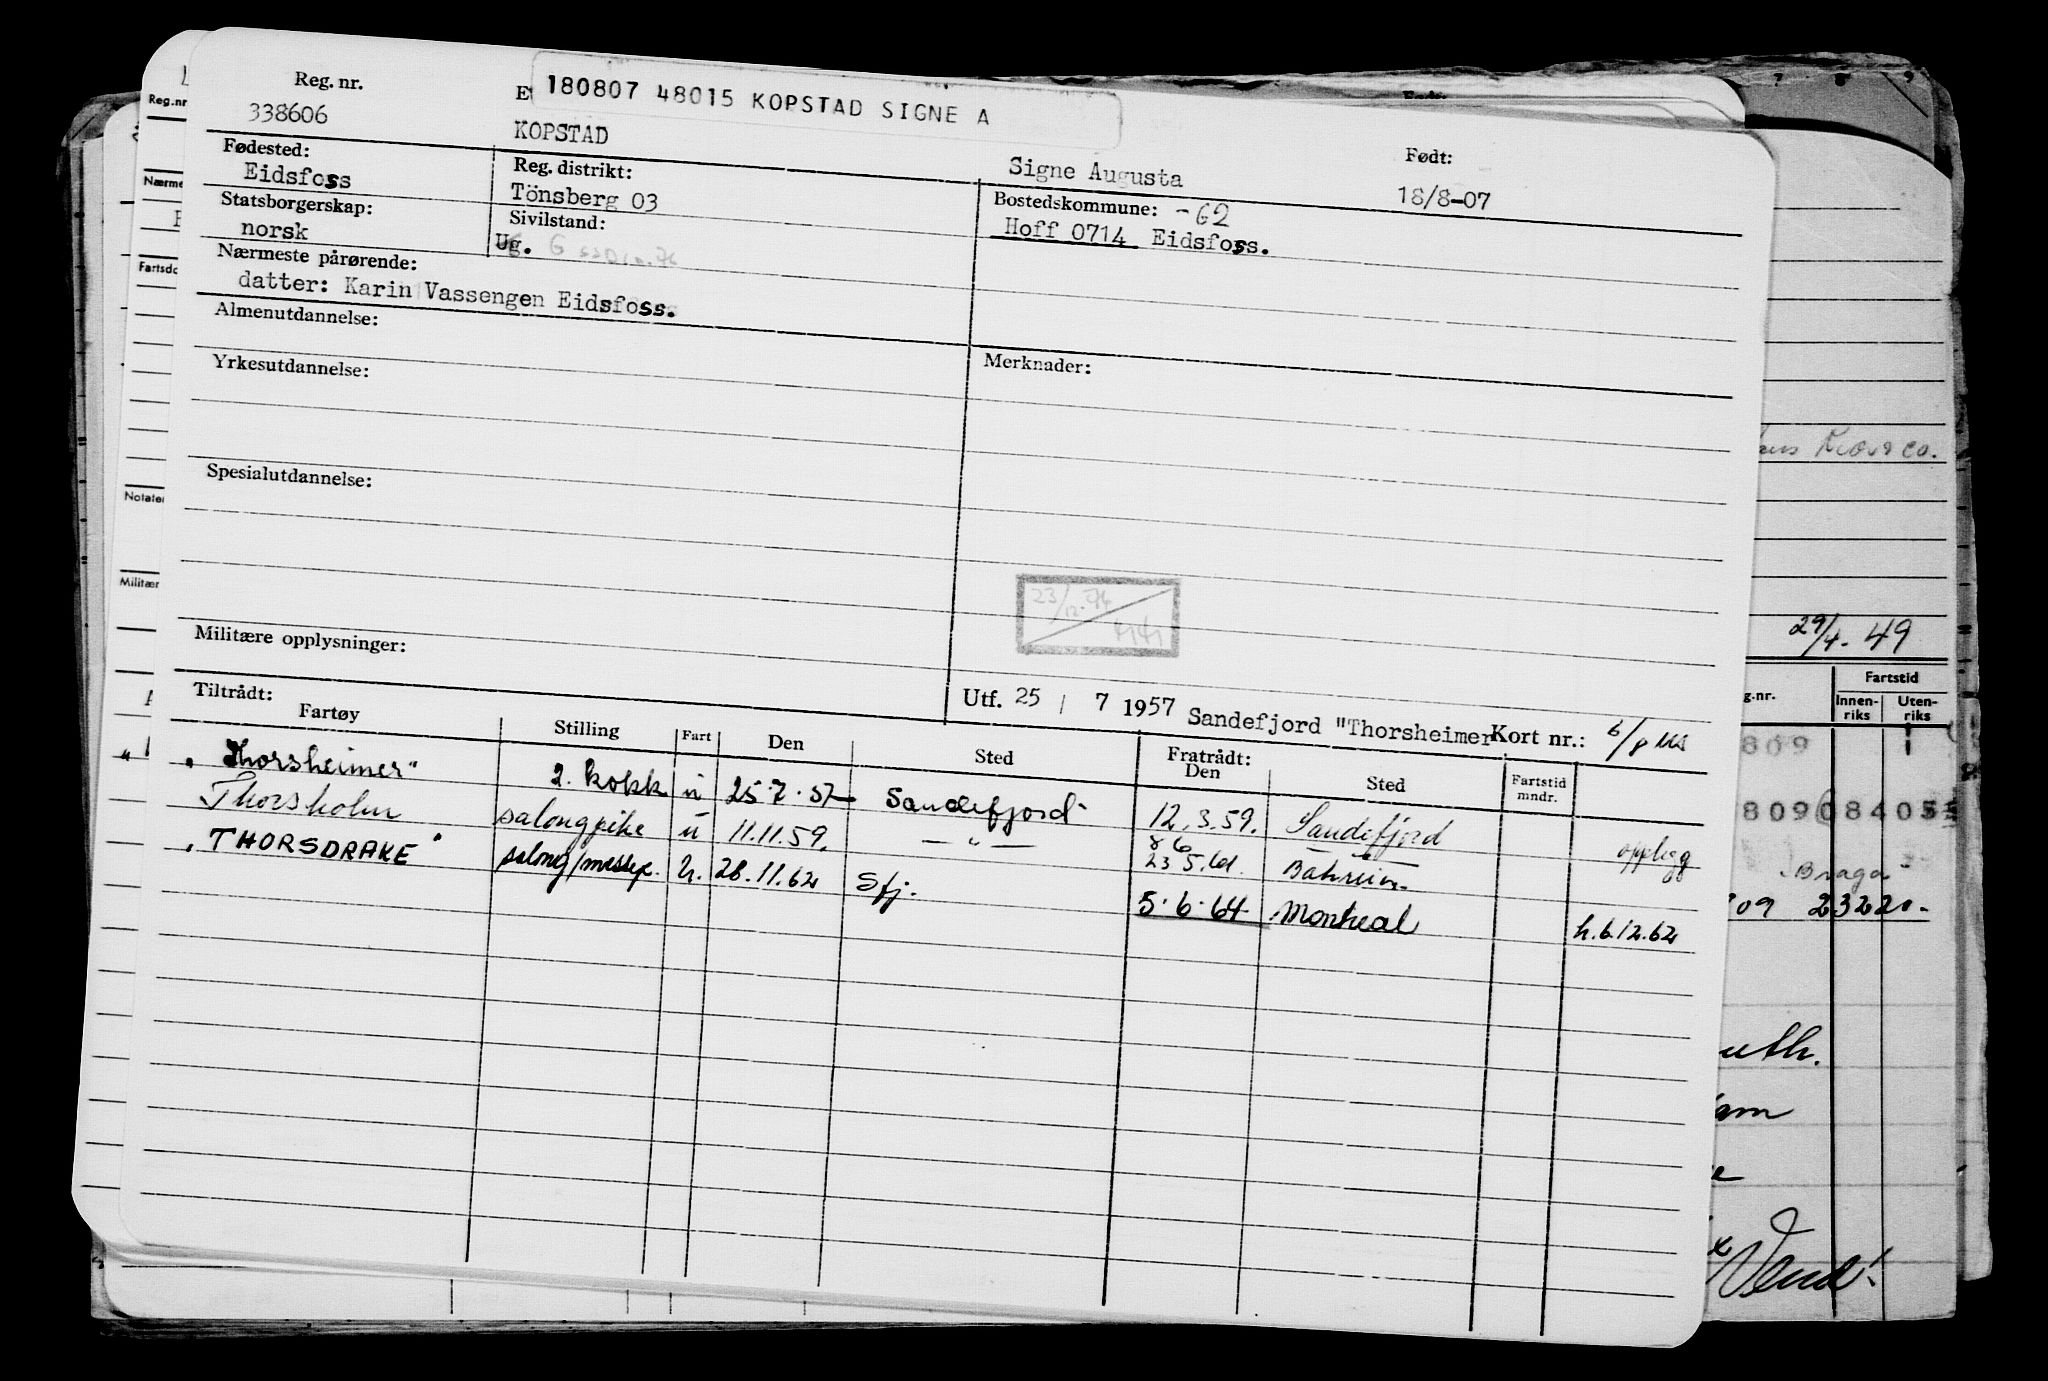 Reg. nr.
338606
180807 48015 KOPSTAD SIGNE A
KOPSTAD
Signe Augusta
Født:
18/8-07
Fødested:
Eidsfoss
Reg. distrikt:
Tönsberg 03
Bostedskommune: -62
Hoff 0714 Eidsfoss.
Statsborgerskap:
norsk
Sivilstand:
Ug.
Nærmeste pårørende:
datter: Karin Vassengen Eidsfoss.
Almenutdannelse:
Yrkesutdannelse:
Merknader:
Spesialutdannelse:
23/12-74
Militære opplysninger:
Utf. 25 / 7 1957 Sandefjord "Thorsheimer
Kort nr.:
Tiltrådt:
Fartøy Stilling Fart Den Sted Fratrådt: Den Sted Fartstid mndr.
"Thorsheimer" 2. kokk u 25.7.57 Sandefjord 12.3.59. Sandefjord opplegg
Thorsholm salongpike u 11.11.59. — " — 23 5.61. Bahrein
"THORSDRAKE" salong/messep. u. 28.11.62 Sfj. 5.6.64 Montreal h.6.12.62
Reg.nr
Nærme
Fartsdo
Notater
Militær
29/4-49
g.nr.
Fartstid
Innen-riks
Uten-riks
809
809 08405
"Braga"
709 23220.-
Vend!